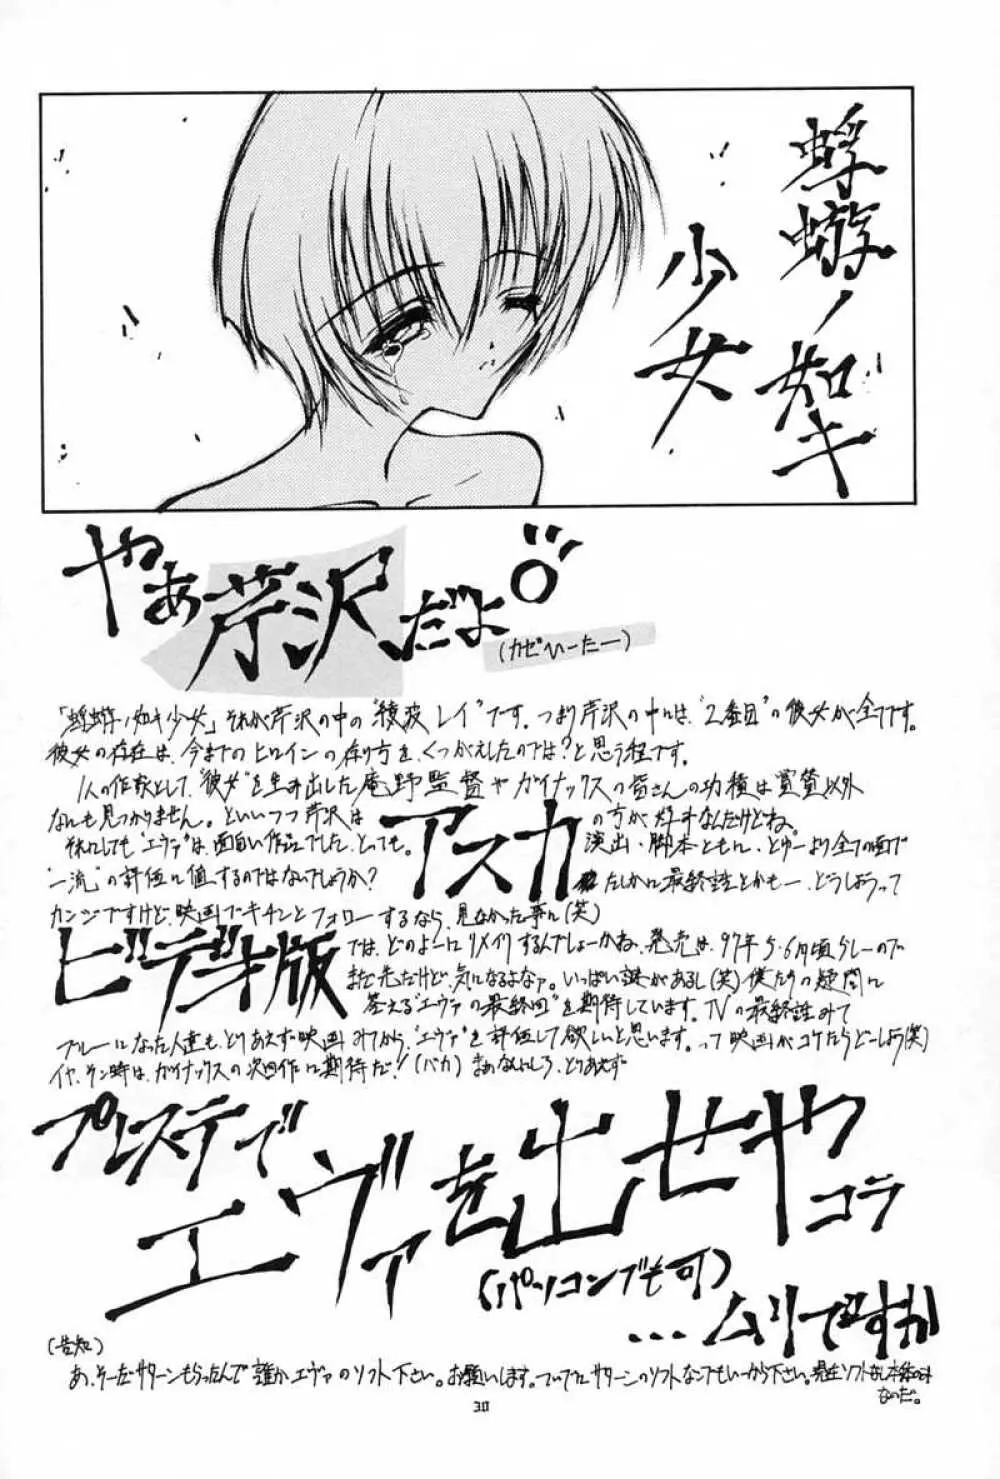 蜉蝣ノ如キ
少女
やあ芹沢だよ
(カゼひーたー)
「蜉蝣ノ如キ少女」それが芹沢の中の“綾波レイ”です。つまり芹沢の中には“2番目”の彼女が全てです。
彼女の存在は、今までのヒロインの在り方を、くつがえしたのでは?と思う程です。
1人の作家として“彼女”を生み出した庵野監督やガイナックスの皆さんの功積は賞賛以外
なにも見つかりません。といいつつ芹沢は
アスカ
の方が好きなんだけどね。
それにしても“エヴァ”は、面白い作品でした、とっても。
演出・脚本ともに、とゆーより全ての面で
“一流”の評価に値するのではないでしょうか?
たしかに最終話とかもー、どうしようって
カンジですけど、映画でキチンとフォローするなら、見なかった事に(笑)
ビデオ版
では、どのよーにリメイクするんでしょーかね、発売は、97年5・6月頃らしーので
まだ先だけど、気になるよなァ。いっぱい謎があるし(笑)僕たちの疑問に
答える“エヴァの最終回”を期待しています。TVの最終話みて
ブルーになった人達も、とりあえず映画みてから、“エヴァ”を評価して欲しいと思います。って映画がコケたらどーしよう(笑)
イヤ、そん時は、ガイナックスの次回作に期待だ!(バカ) まあなんにしろ、とりあえず
プレステで
エヴァを出せや
コラ
(パソコンでも可)
...ムリですか
(告知)
あ、そーだサターンもらったんで誰かエヴァのソフト下さい。お願いします。ついでにサターンのソフトなんでもいーから下さい。現在ソフトなし本体のみ
なのだ。
30